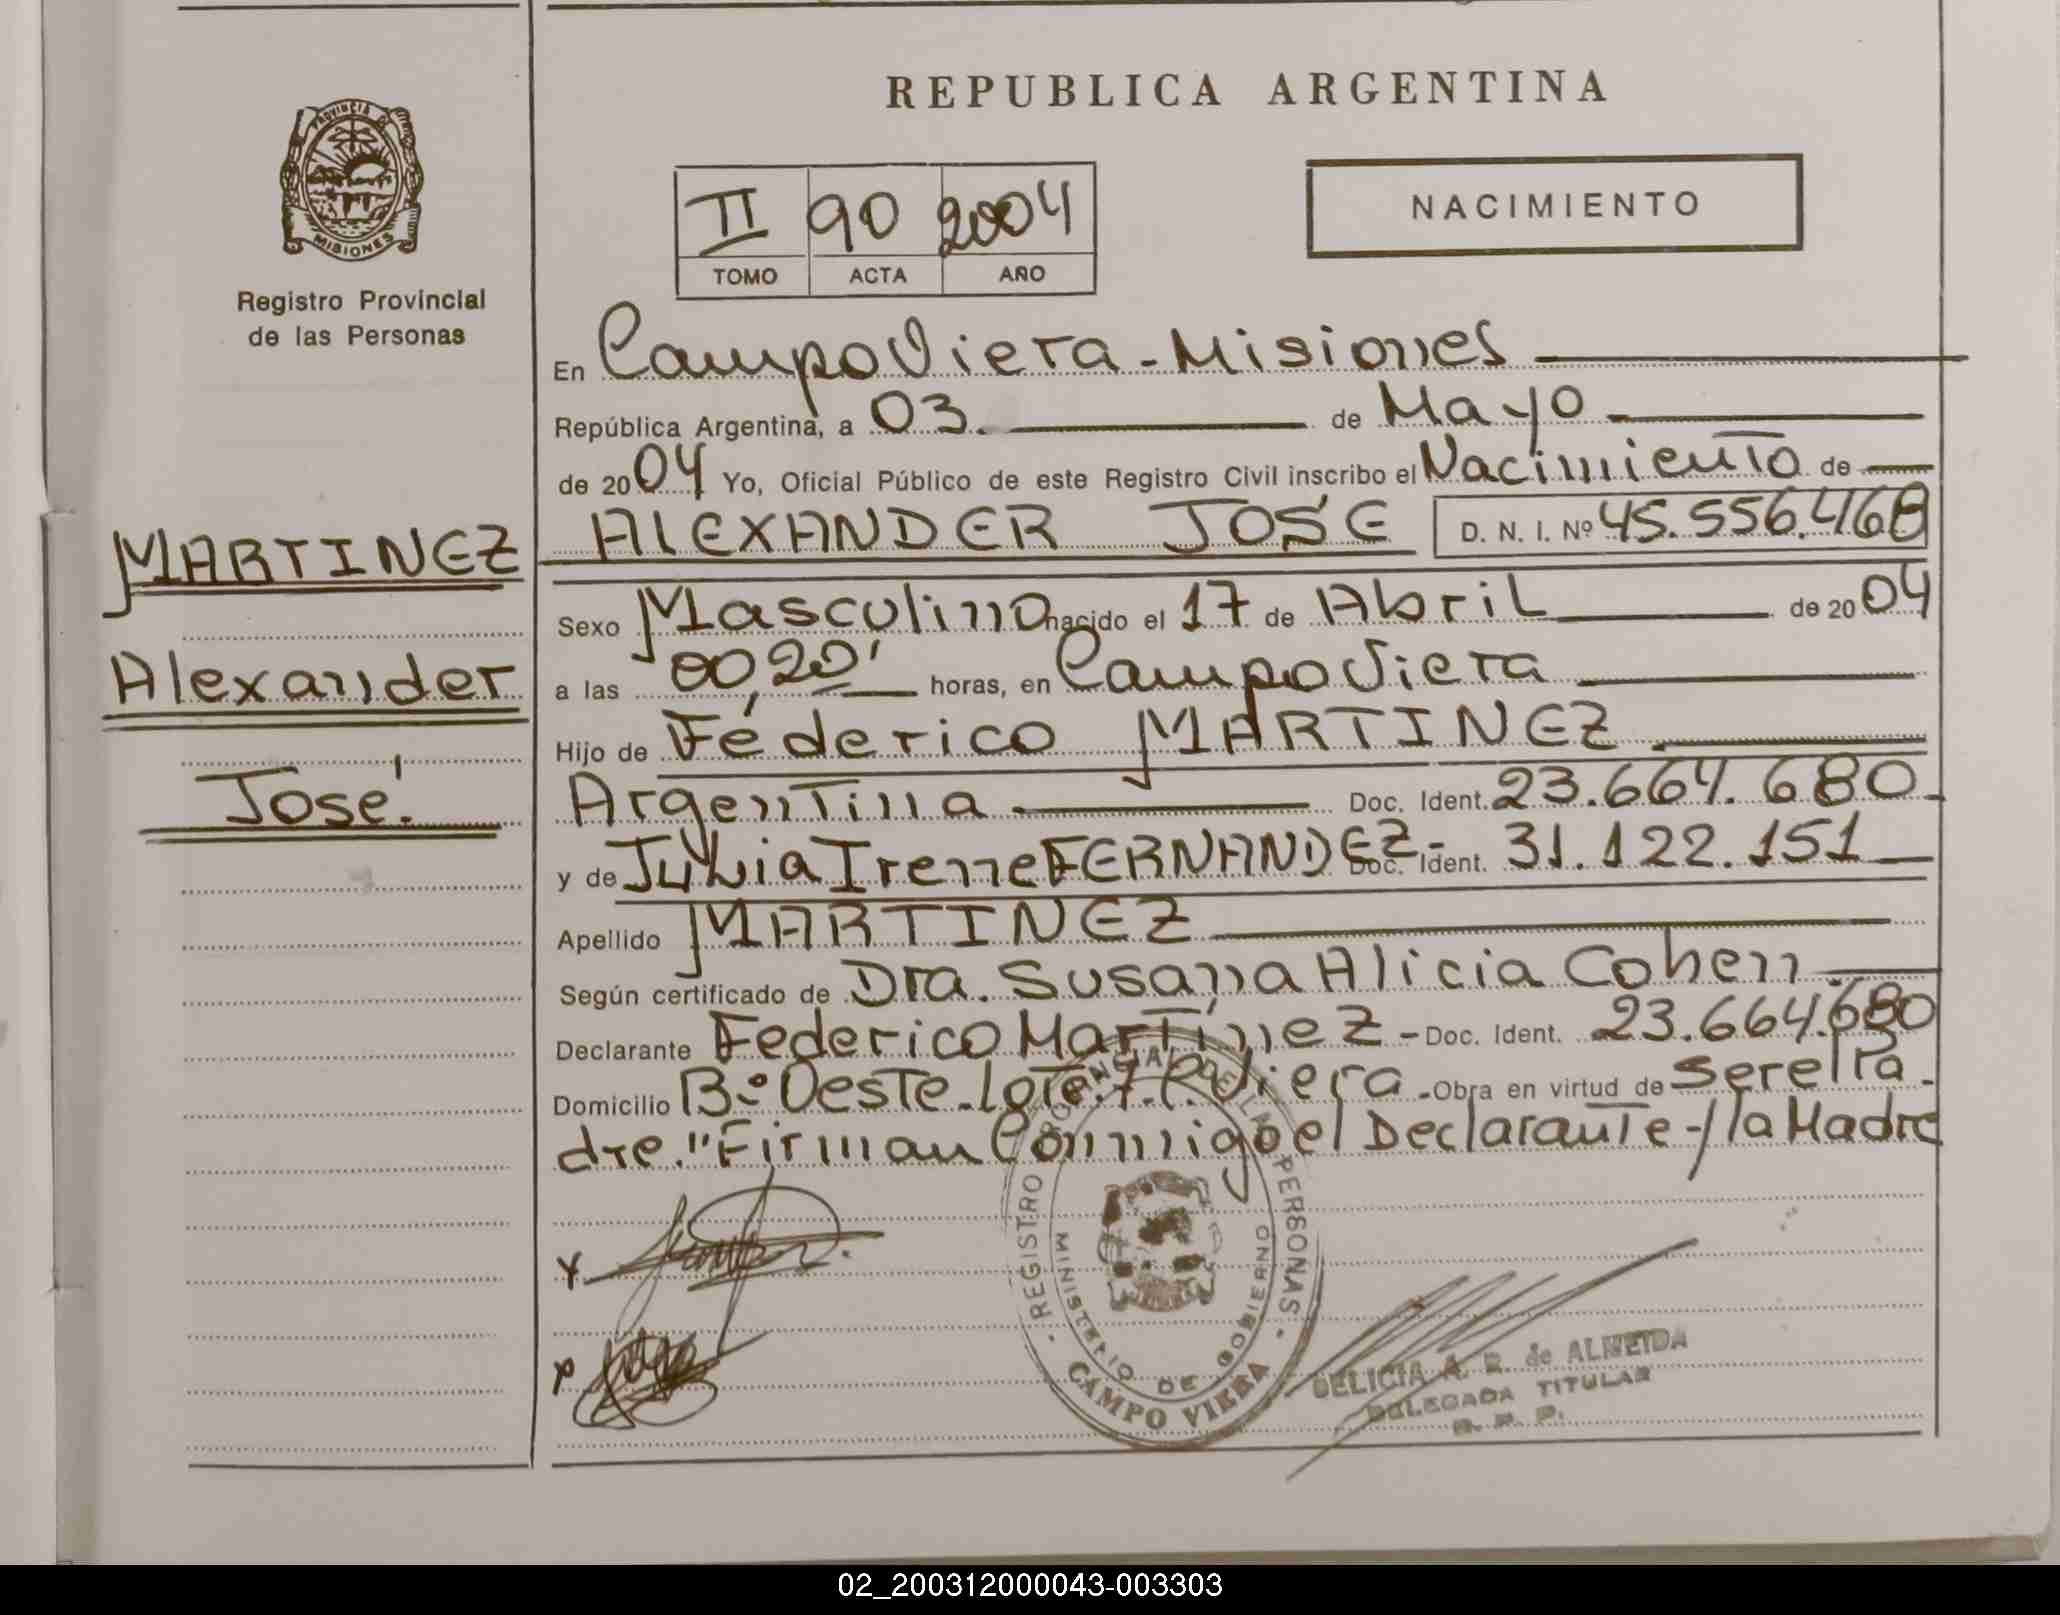 REPUBLICA ARGENTINA
PROVINCIA DE
MISIONES
Registro Provincial
de las Personas
II 90 2004
TOMO ACTA AÑO
NACIMIENTO
En Campo Viera - Misiones
República Argentina, a 03. de Mayo
de 2004 Yo, Oficial Público de este Registro Civil inscribo el Nacimiento de
ALEXANDER JOSÉ D. N. I. Nº 45.556.468
MARTINEZ
Alexander
José.
Sexo Masculino nacido el 17 de Abril de 2004
a las 00,20' horas, en Campo Viera
Hijo de Féderico MARTINEZ
Argentina Doc. Ident. 23.664.680
y de Irene FERNANDEZ- Doc. Ident. 31.122.151
Apellido MARTINEZ
Según certificado de Dra. Susana Alicia Cohen
Declarante Federico Martínez - Doc. Ident. 23.664.680
Domicilio Bº Oeste - Lote. 7. C. Viera - Obra en virtud de Ser el Pa-
dre." Firman Conmigo el Declarante -/ la Madre
REGISTRO PROVINCIAL DE LAS PERSONAS
MINISTERIO DE GOBIERNO
CAMPO VIERA
DELICIA A. R. de ALMEIDA
DELEGADA TITULAR
R. P. P.
02_200312000043-003303